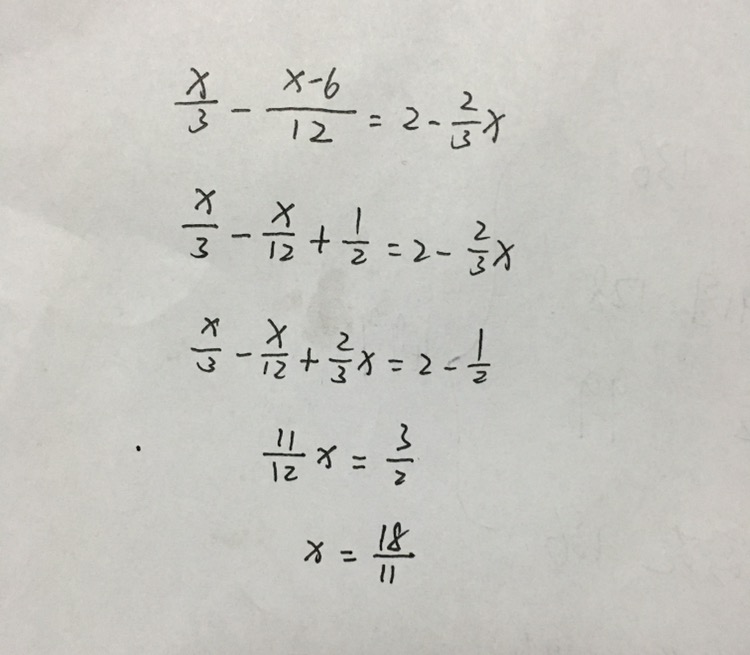 x/3 - (x-6)/12 = 2 - 2/3 x
x/3 - x/12 + 1/2 = 2 - 2/3 x
x/3 - x/12 + 2/3 x = 2 - 1/2
11/12 x = 3/2
x = 18/11